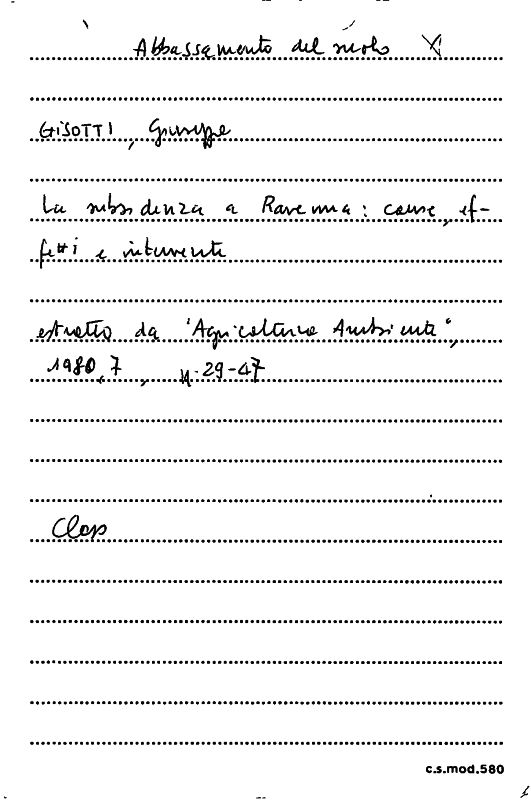 Abbassamento del suolo
GISOTTI, Giuseppe
La subsidenza a Ravenna: cause, ef-
fetti e interventi
estratto da "Agricoltura Ambiente",
1980, 7, p. 29-47
c.s.mod.580